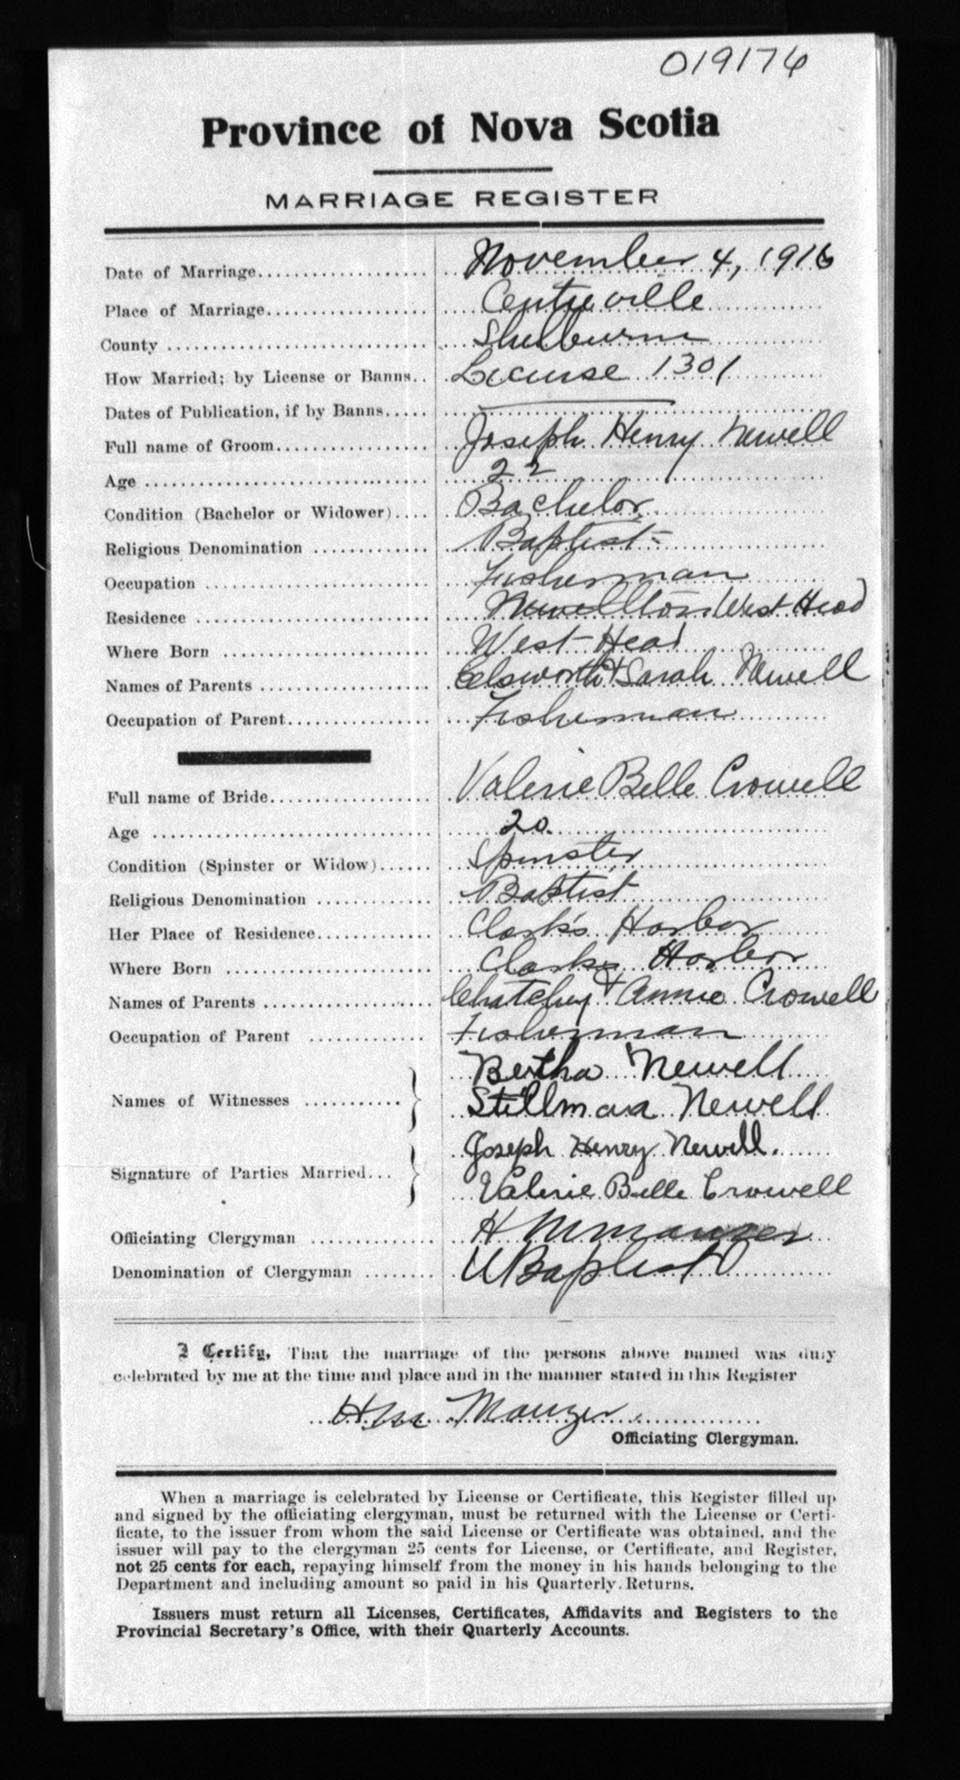 019176
Province of Nova Scotia
MARRIAGE REGISTER
Date of Marriage.................... November 4, 1916
Place of Marriage................... Centreville
County ............................. Shelburne
How Married; by License or Banns.. License 1301
Dates of Publication, if by Banns..... ———
Full name of Groom.................. Joseph Henry Newell
Age ................................ 22
Condition (Bachelor or Widower).... Bachelor
Religious Denomination ............. Baptist
Occupation ......................... Fisherman
Residence .......................... Newellton West Head
Where Born ......................... West Head
Names of Parents ................... Elsworth & Sarah Newell
Occupation of Parent................ Fisherman
Full name of Bride.................. Valerie Belle Crowell
Age ................................ 20.
Condition (Spinster or Widow)...... Spinster
Religious Denomination ............. Baptist
Her Place of Residence............. Clark's Harbor
Where Born ......................... Clarks Harbor
Names of Parents ................... & Annie Crowell
Occupation of Parent ............... Fisherman
Names of Witnesses ........... } Bertha Newell
Stillman Newell
Signature of Parties Married... } Joseph Henry Newell.
Valerie Belle Crowell
Officiating Clergyman .............. H
Denomination of Clergyman ........ U Baptist
I Certify, That the marriage of the persons above named was duly
celebrated by me at the time and place and in the manner stated in this Register
Manzer
Officiating Clergyman.
When a marriage is celebrated by License or Certificate, this Register filled up
and signed by the officiating clergyman, must be returned with the License or Certi-
ficate, to the issuer from whom the said License or Certificate was obtained, and the
issuer will pay to the clergyman 25 cents for License, or Certificate, and Register,
not 25 cents for each, repaying himself from the money in his hands belonging to the
Department and including amount so paid in his Quarterly Returns.
Issuers must return all Licenses, Certificates, Affidavits and Registers to the
Provincial Secretary's Office, with their Quarterly Accounts.